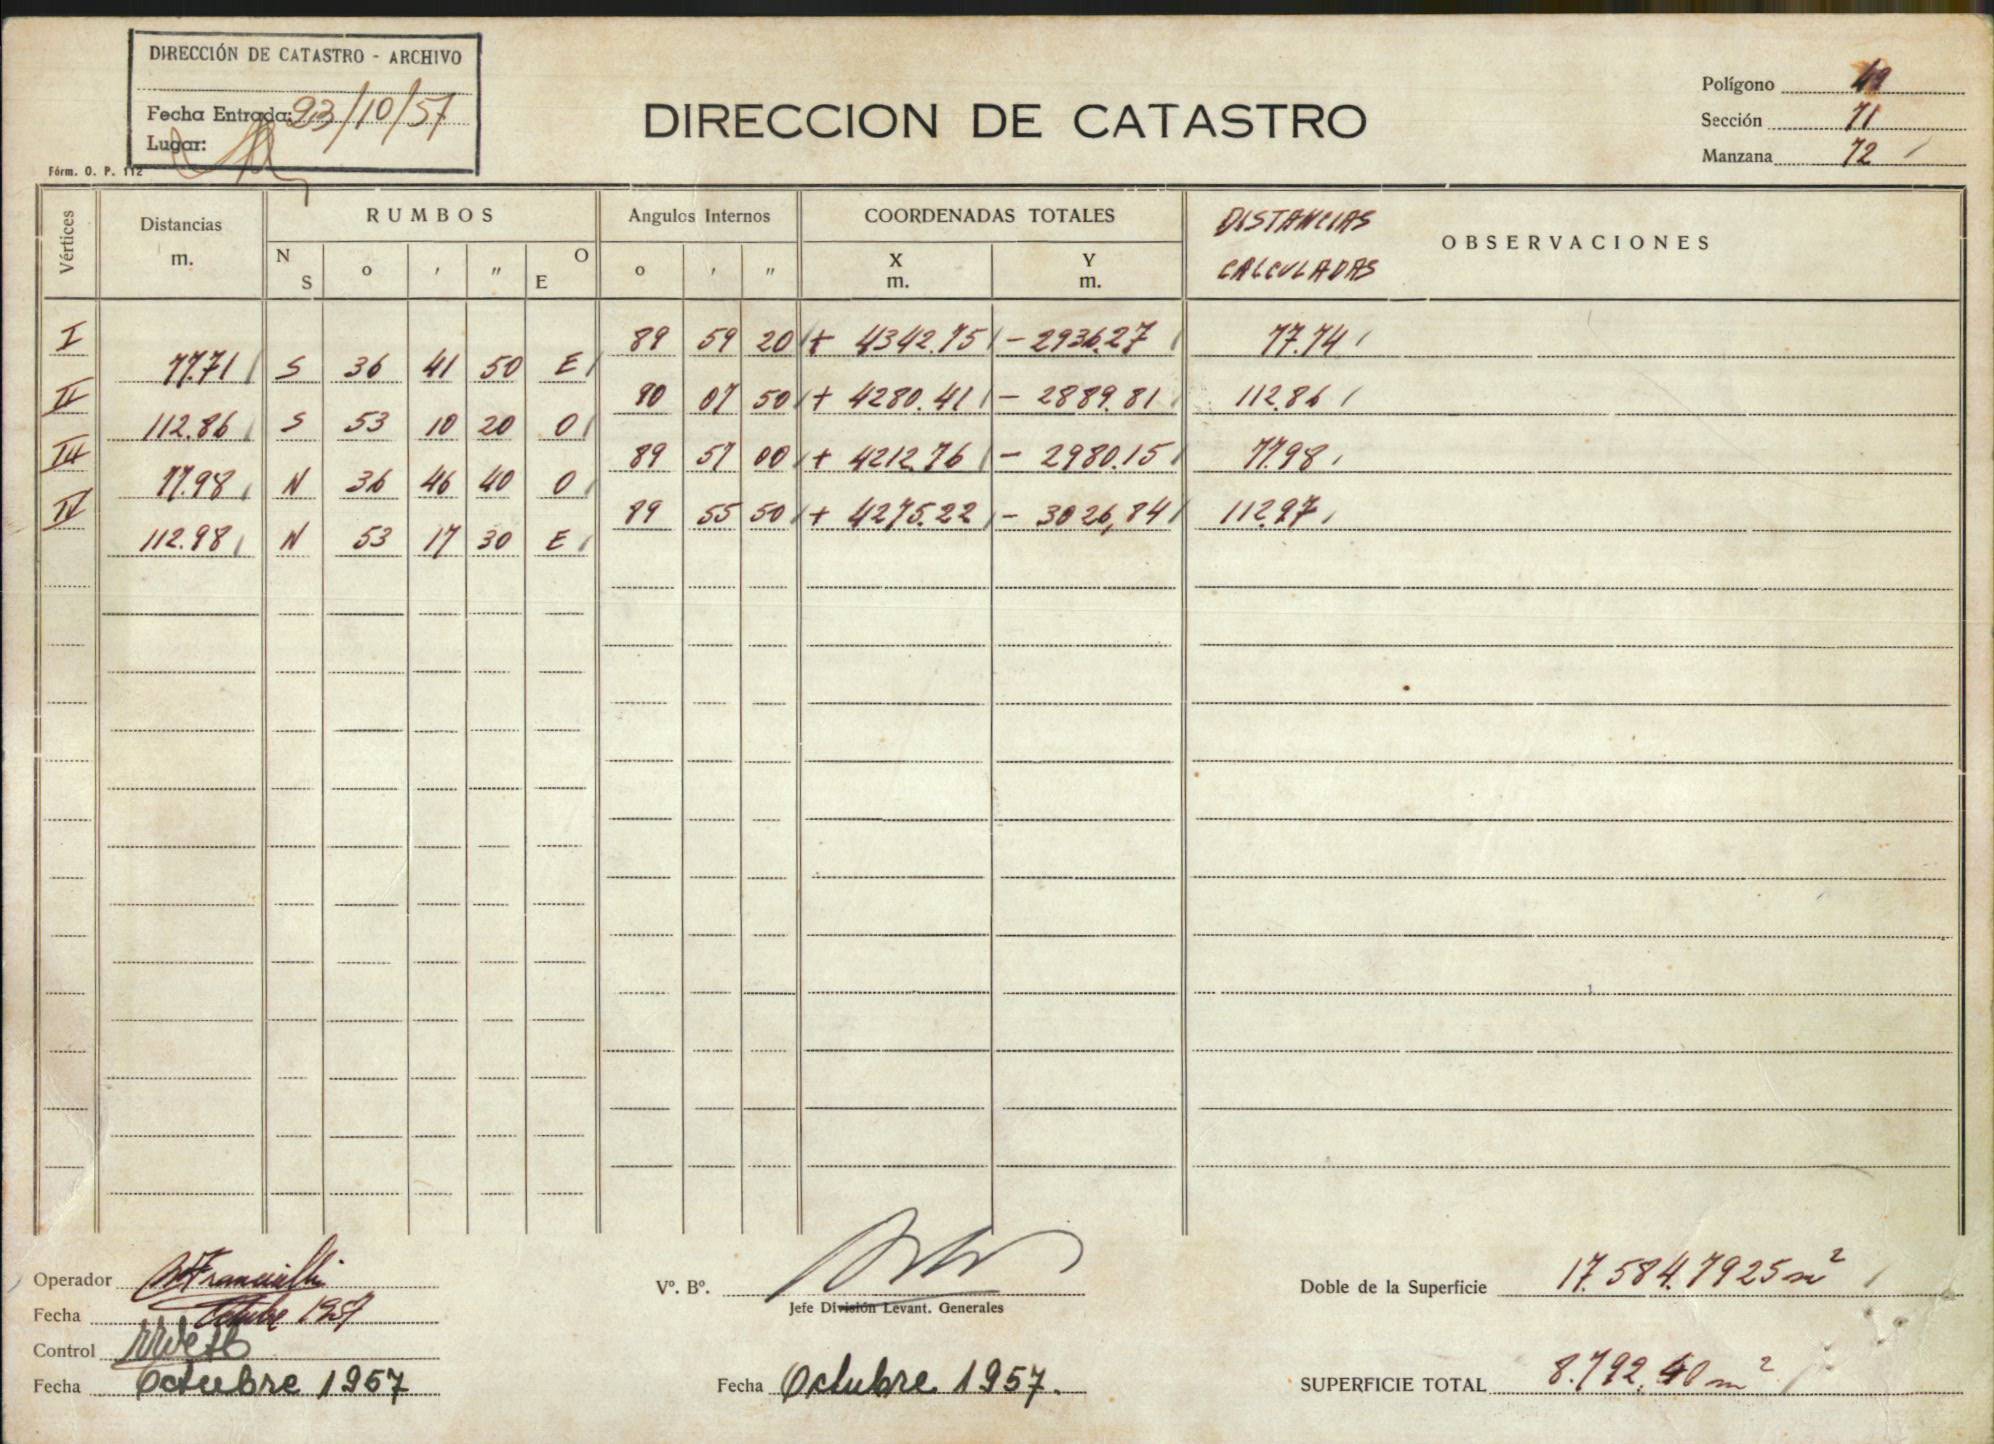 DIRECCIÓN DE CATASTRO - ARCHIVO
Fecha Entrada: 23/10/57
Lugar:
Fórm. O. P. 112
DIRECCION DE CATASTRO
Polígono 49
Sección 71
Manzana 72
Vértices Distancias m. RUMBOS N S o ' " O E Angulos Internos o ' " COORDENADAS TOTALES X m. Y m. DISTANCIAS CALCULADAS OBSERVACIONES
I 89 59 20 + 4342.75 - 2936.27 77.74
77.71 S 36 41 50 E
II 90 07 50 + 4280.41 - 2889.81 112.86
112.86 S 53 10 20 O
III 89 57 00 + 4212.76 - 2980.15 77.98
77.98 N 36 46 40 O
IV 89 55 50 + 4275.22 - 3026,84 112.97
112.98 N 53 17 30 E
Operador
Fecha Octubre 1957
Control
Fecha Octubre 1957
Vº. Bº.
Jefe División Levant. Generales
Fecha Octubre 1957.
Doble de la Superficie 17.584.7925 m²
SUPERFICIE TOTAL 8.792.40 m²